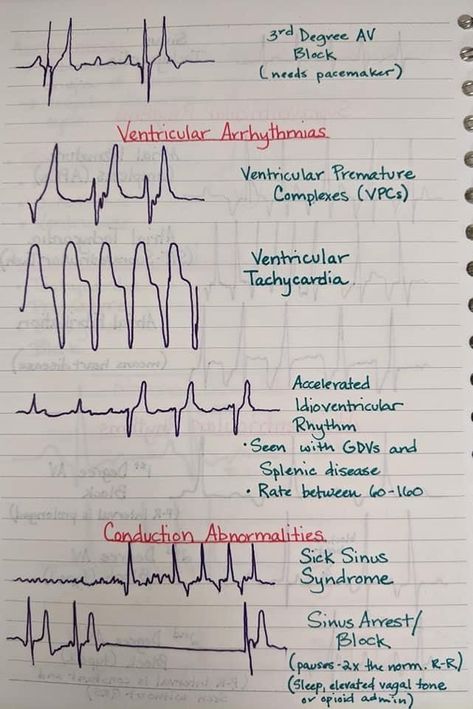 3rd Degree AV
Block
(needs pacemaker)
Ventricular Arrhythmias
Ventricular Premature
Complexes (VPCs)
Ventricular
Tachycardia.
Accelerated
Idioventricular
Rhythm
• Seen with GDVs and
Splenic disease
• Rate between 60-160
Conduction Abnormalities
Sick Sinus
Syndrome
Sinus Arrest/
Block
(pauses ~2x the norm. R-R)
(Sleep, elevated vagal tone
or opioid admin)